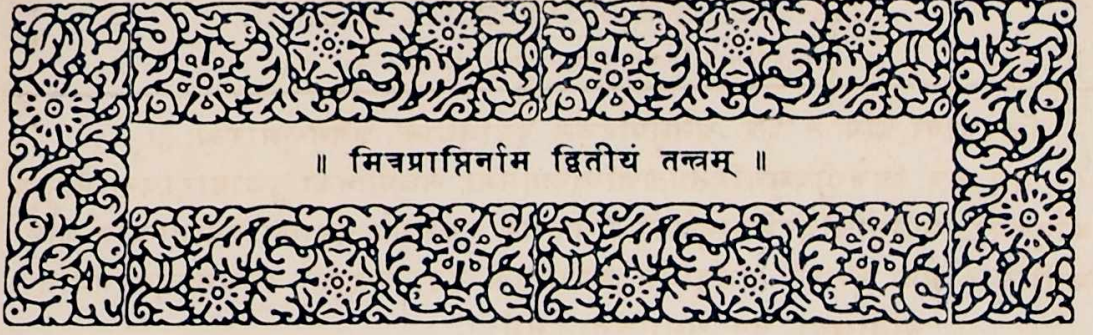 ॥ मित्रप्राप्तिर्नाम द्वितीयं तन्त्रम् ॥